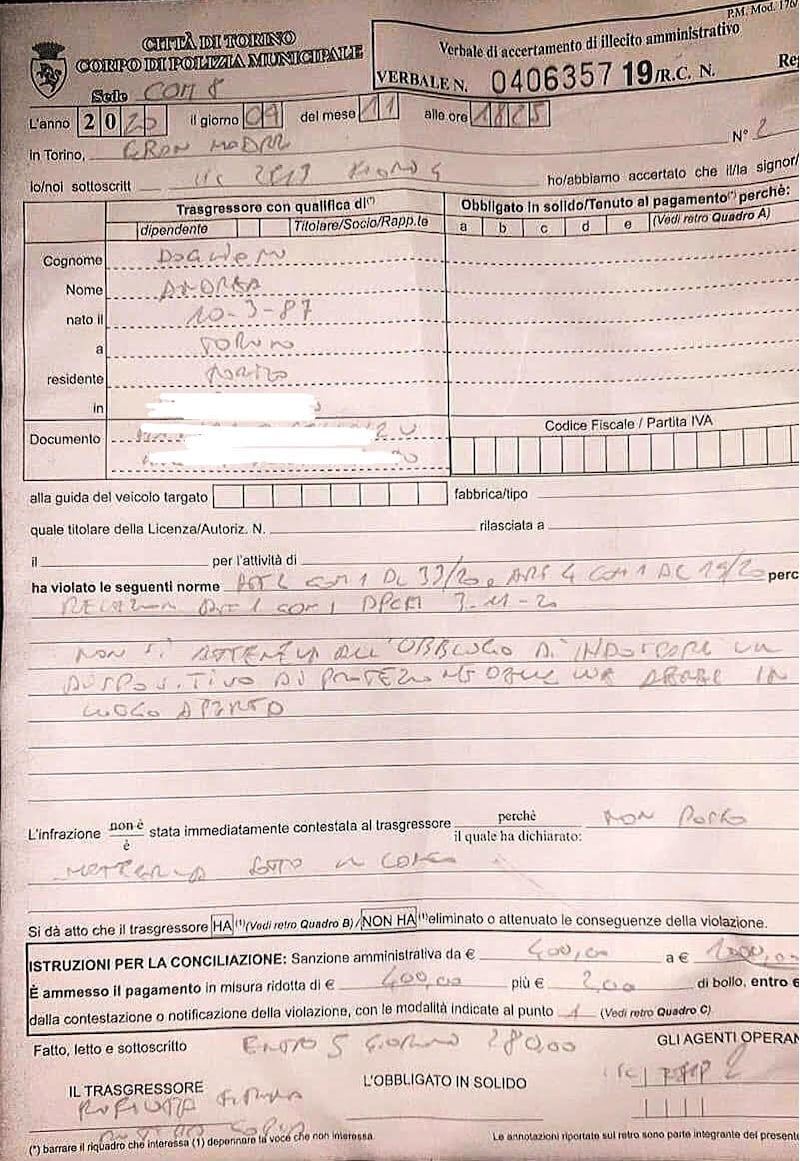 P.M. Mod. 176/
CITTÀ DI TORINO
CORPO DI POLIZIA MUNICIPALE
Verbale di accertamento di illecito amministrativo
VERBALE N. 0406357 19/R.C. N. Re
Sede COM 8
L'anno 2020 il giorno 09 del mese 11 alle ore 1825
In Torino, N° 2
Io/noi sottoscritt ho/abbiamo accertato che il/la signor/
Trasgressore con qualifica di(*) Obbligato in solido/Tenuto al pagamento(*) perchè:
dipendente Titolare/Socio/Rapp.te a b c d e (Vedi retro Quadro A)
Cognome
Nome ANDREA
nato il 10-3-87
a TORINO
residente TORINO
in
Documento Codice Fiscale / Partita IVA
alla guida del veicolo targato fabbrica/tipo
quale titolare della Licenza/Autoriz. N. rilasciata a
il per l'attività di
ha violato le seguenti norme COM 1 DL 33/20 ART 4 COM 1 DL 19/20 perc
COM 1 DPCM 3-11-20
NON SI ATTENEVA ALL'OBBLIGO DI INDOSSARE UN
DISPOSITIVO DI PROTEZIONE DELLE VIE AEREE IN
LUOGO APERTO
L'infrazione non è / è stata immediatamente contestata al trasgressore perchè / il quale ha dichiarato: NON PORTO
Si dà atto che il trasgressore HA (1)(Vedi retro Quadro B) / NON HA (1)eliminato o attenuato le conseguenze della violazione.
ISTRUZIONI PER LA CONCILIAZIONE: Sanzione amministrativa da € 400,00 a € 1000,00
È ammesso il pagamento in misura ridotta di € 400,00 più € 2,00 di bollo, entro €
dalla contestazione o notificazione della violazione, con le modalità indicate al punto 1 (Vedi retro Quadro C)
Fatto, letto e sottoscritto ENTRO 5 GIORNI 280,00 GLI AGENTI OPERAN
IL TRASGRESSORE L'OBBLIGATO IN SOLIDO
RIFIUTA FIRMA
(*) barrare il riquadro che interessa (1) depennare la voce che non interessa. Le annotazioni riportate sul retro sono parte integrante del presente